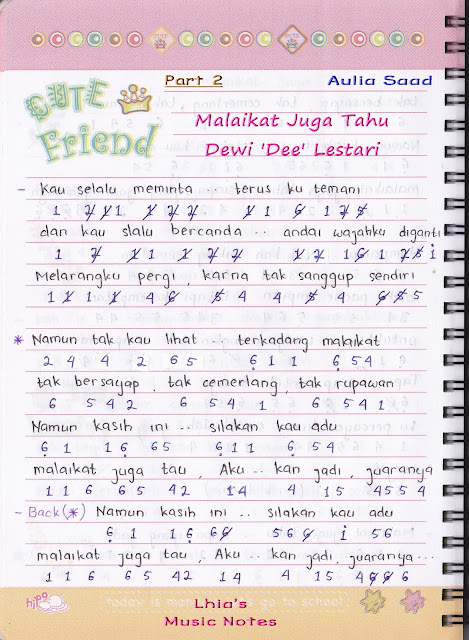 CUTE
Friend
Part 2
Aulia Saad
Malaikat Juga Tahu
Dewi 'Dee' Lestari
- Kau selalu meminta .. terus ku temani
1 7̸ 1̸ 1 1̸ 7̸ 7̸ 1̸ 1 6̸ 1 7̸ 5̸
dan kau slalu bercanda .. andai wajahku diganti
1 7̸ 1̸ 1 1̸ 7̸ 7̸ 1̸ 7̸ 1 6̸ 1 7̸ 5̸ i
Melarangku pergi, karna tak sanggup sendiri
1 1̸ 1 1̸ 4 6̸ 5̸ 4 4 5̸ 4 6̸ 5̸ 5
* Namun tak kau lihat .. terkadang malaikat
2 4 4 2 6 5 6̣ 1 1 6̣ 5 4
tak bersayap, tak cemerlang, tak rupawan
6 5 4 2 6 5 4 1 6 5 4 1
Namun kasih ini .. silakan kau adu
6̣ 1 1 6̣ 6 5 6̣ 1 1 6̣ 5 4
malaikat juga tau, Aku .. kan jadi, juaranya
1 1 6 6 5 4 2 1 4 4 1 5 4 5 5 4
- Back (*) Namun kasih ini .. silakan kau adu
6̣ 1 1 6̣ 6 6̸ 5 6 6̸ i 5 6
malaikat juga tau, Aku .. kan jadi, juaranya ...
1 1 6 6 5 4 2 1 4 4 1 5 4 6̸ 6̸ 6
hipo
today is go to school
Lhia's
Music Notes